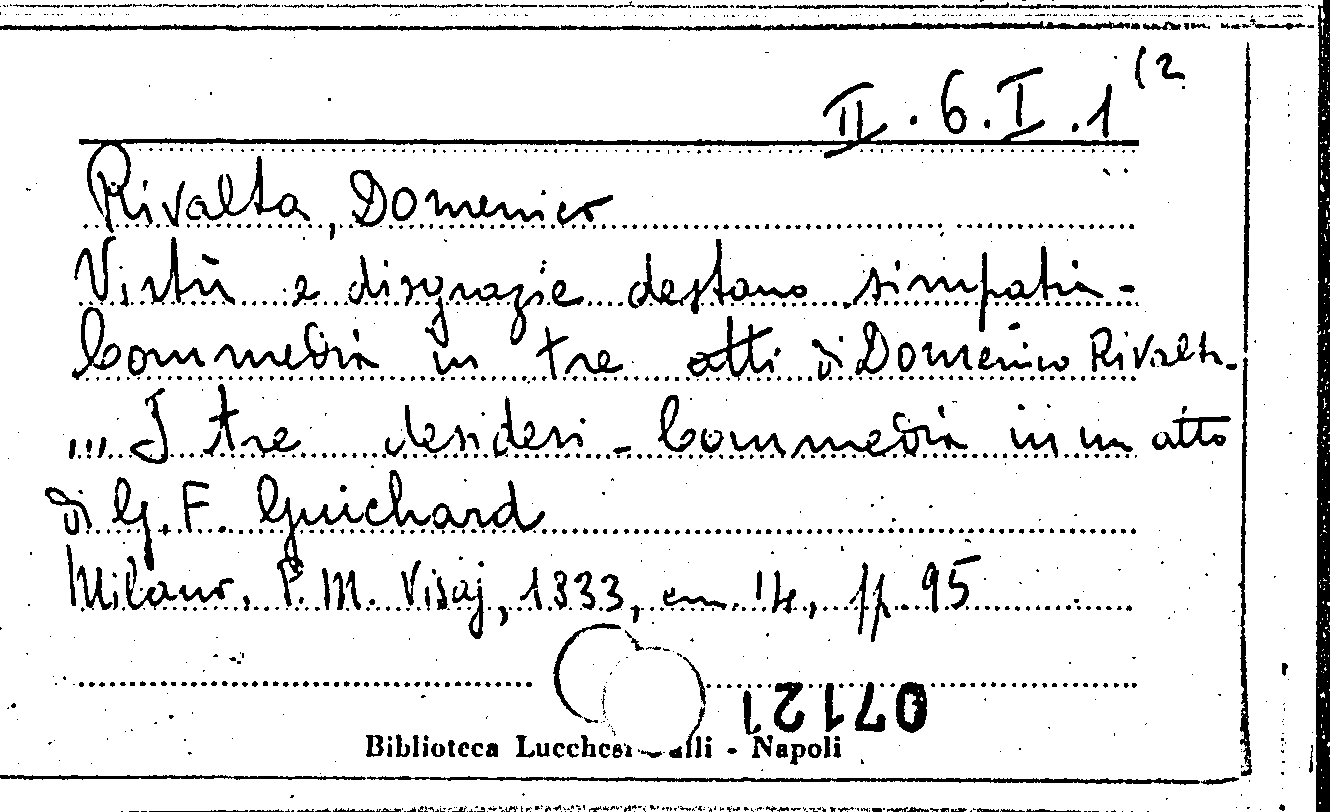 II.6.I.1(2
Rivalta, Domenico
Virtù e disgrazie destano simpatia -
Commedia in tre atti di Domenico Rivalta
... I tre desideri - Commedia in un atto
di G. F. Guichard
Milano, P. M. Visaj, 1833, cm. 14, pp. 95
07121
Biblioteca Lucchesi - Napoli